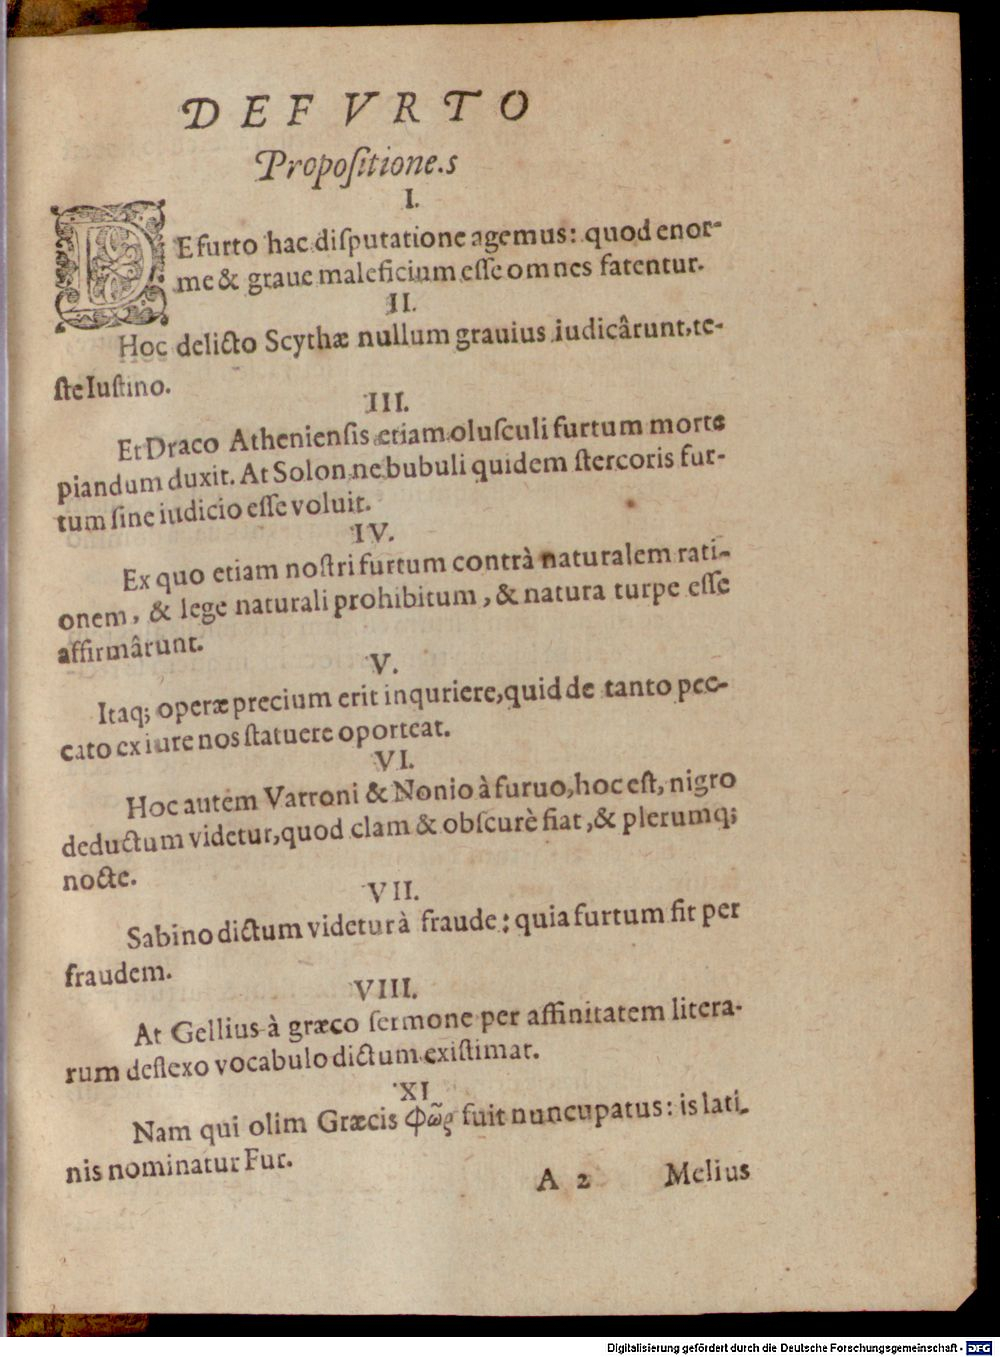 DE FVRTO
Propoſitione.s
I.
DE furto hac diſputatione agemus: quod enor-
me & graue maleficium eſſe omnes fatentur.
II.
Hoc delicto Scythæ nullum grauius iudicârunt, te-
ſte Iuſtino.
III.
Et Draco Athenienſis etiam oluſculi furtum morte
piandum duxit. At Solon ne bubuli quidem ſtercoris fur-
tum ſine iudicio eſſe voluit.
IV.
Ex quo etiam noſtri furtum contrà naturalem rati-
onem, & lege naturali prohibitum, & natura turpe eſſe
affirmârunt.
V.
Itaq; operæ precium erit inquriere, quid de tanto pec-
cato ex iure nos ſtatuere oporteat.
VI.
Hoc autem Varroni & Nonio à furuo, hoc eſt, nigro
deductum videtur, quod clam & obſcurè fiat, & plerumq;
nocte.
VII.
Sabino dictum videtur à fraude: quia furtum fit per
fraudem.
VIII.
At Gellius à græco ſermone per affinitatem litera-
rum deflexo vocabulo dictum exiſtimat.
XI
Nam qui olim Græcis φῶρ fuit nuncupatus: is lati-
nis nominatur Fur.
A 2 Melius
Digitalisierung gefördert durch die Deutsche Forschungsgemeinschaft - DFG